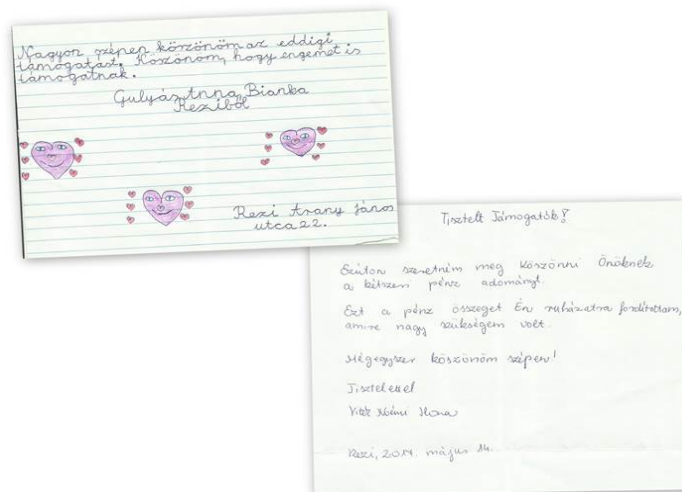 Nagyon szépen köszönöm az eddigi
támogatást. Köszönöm, hogy engemet is
támogatnak.
Gulyás Anna Bianka
Reziből
Rezi Arany János
utca 22.
Tisztelt Támogatók!
Ezúton szeretném meg köszönni Önöknek
a kétszeri pénz adományt.
Ezt a pénz összeget Én ruházatra fordítottam,
amire nagy szükségem volt.
Mégegyszer köszönöm szépen!
Tisztelettel
Noémi Ilona
Rezi, május 14.